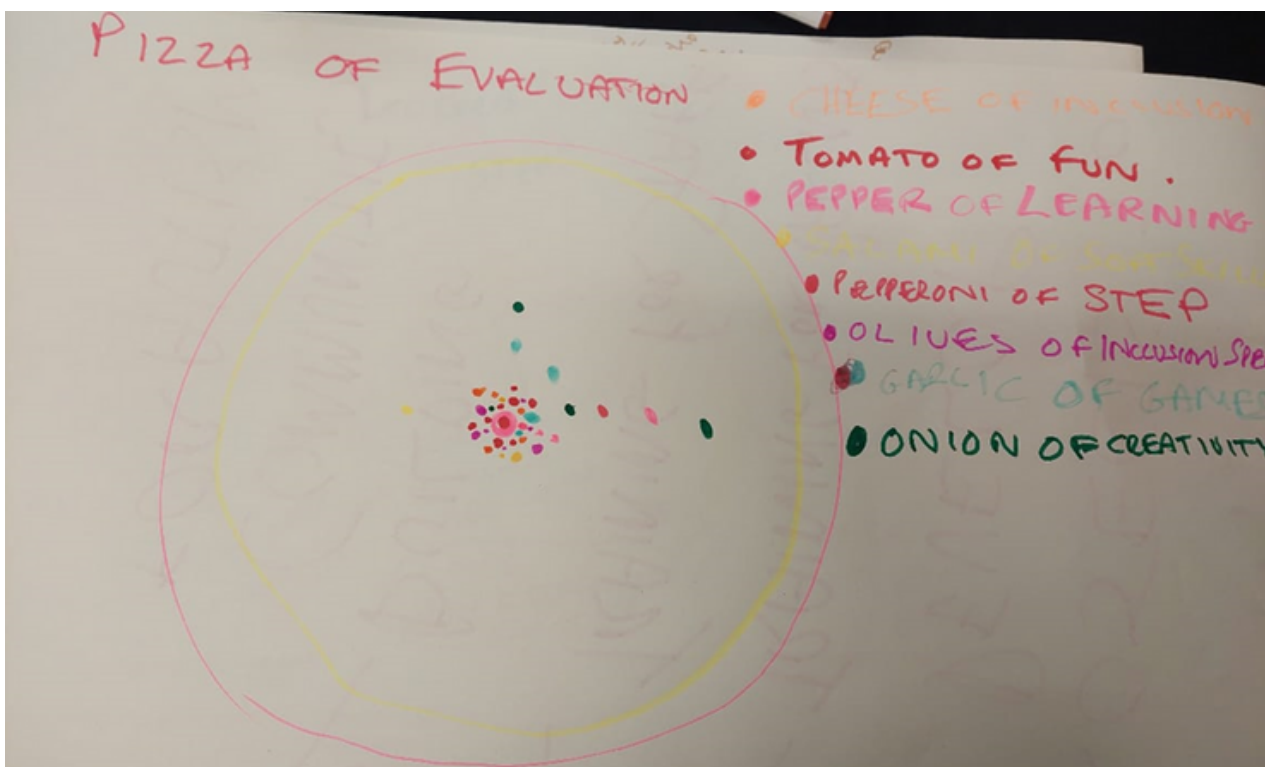 PIZZA OF EVALUATION
CHEESE OF INCLUSION
TOMATO OF FUN.
PEPPER OF LEARNING
SALAMI OF SOFT
PEPPERONI OF STEP
OLIVES OF INCLUSION SPE
GARLIC OF GAMES
ONION OF CREATIVITY